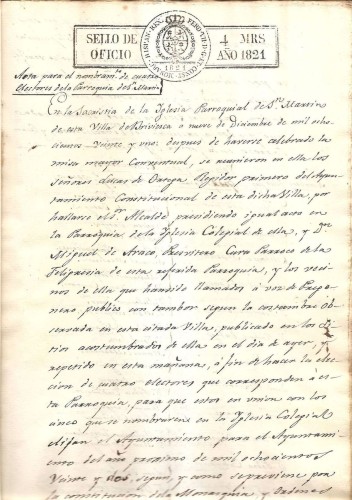 SELLO DE
OFICIO
4 MRS
AÑO 1821
1821
Nota para el nombram.to de cuatro
Electores de la Parroquia de S.n Martin
En la Sacristia de la Iglesia Parroquial de S.n Martin
de esta Villa de Briviesca à nueve de Diciembre de mil ocho
cientos veinte y uno: despues de haverse celebrado la
misa mayor Conventual, se reunieron en ella los
Señores Lucas de Oñega Regidor primero del Ayun
tamiento Constitucional de esta dicha Villa, por
hallarse el S.r Alcalde presidiendo igual acto en
la Parroquia de la Iglesia Colegial de ella, y D.n
Miguel de Araco, Presvitero Cura Parroco de la
Feligresia de esta referida Parroquia, y los veci
nos de ella que haviendo llamados à voz de Prego
nero publico con tambor segun la costumbre ob
servada en esta citada Villa, publicado en los Si
tios acostumbrados de ella en el dia de ayer, y
repetido en esta mañana, à fin de hacer la elec
cion de cuatro electores que corresponden à es
ta Parroquia, para que estos en union con los
cinco que se nombraren en la Iglesia Colegial
elijan el Ayuntamiento para el Ayunta
miento del año proximo de mil ochocientos
Veinte y dos, segun, y como se previene por
la constitucion de la Monarquia, y ordenes